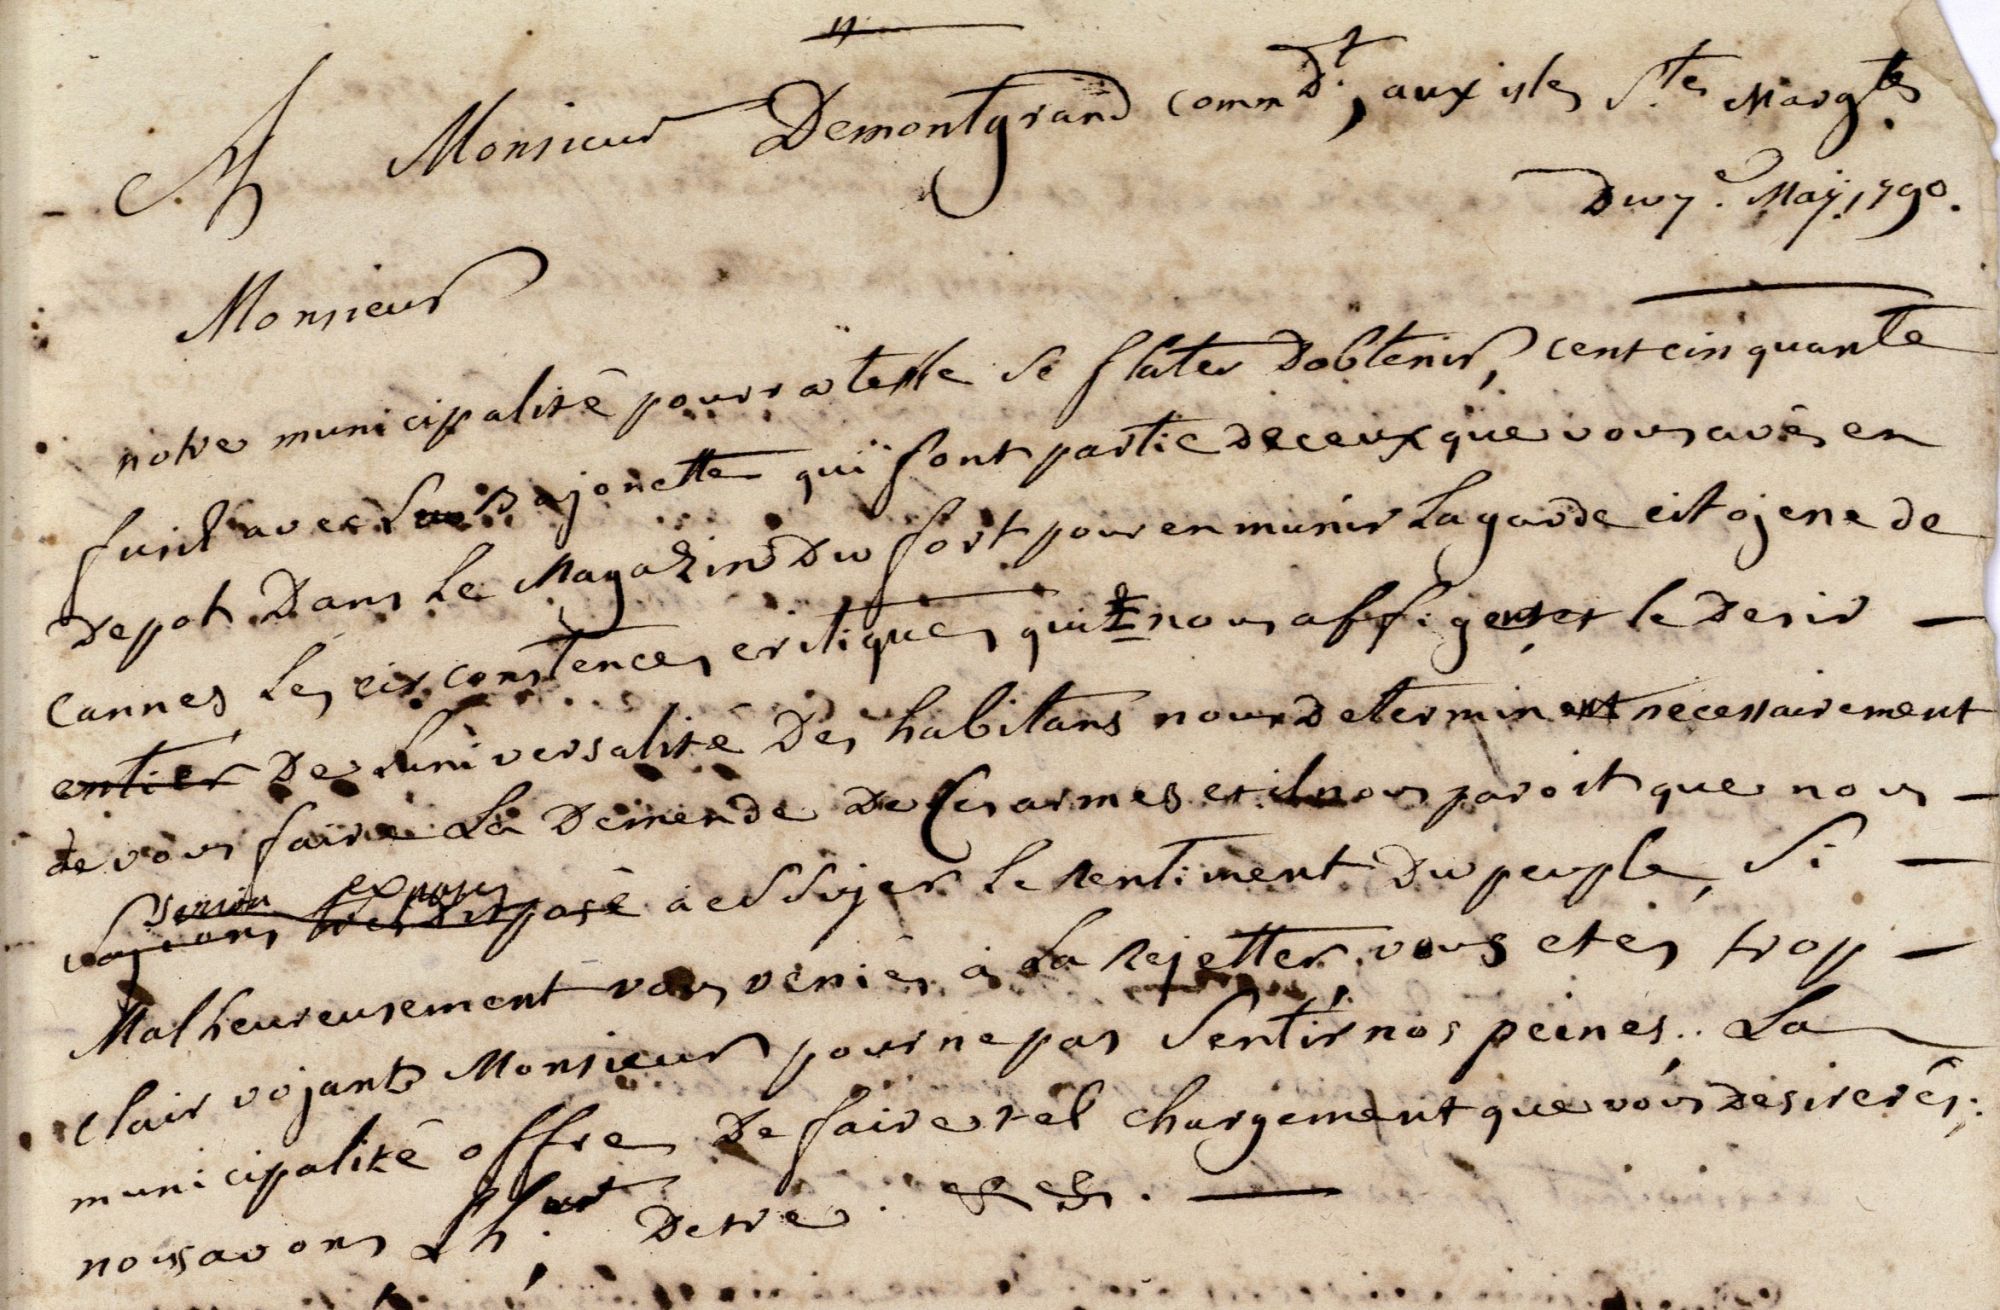 A Monsieur Demontgrand commDt, aux isles Stes Margtes
Du 7e. Maÿ, 1790.
Monsieur
notre municipalité pourra telle se flater Dobtenir, cent cinquante
fusil avec Leur Bajonette quï font partie de ceux que vous avés en
Depot Dans Le Magazin Du fort pour en munir La garde citojene de
Cannes Les cirxconstences critiques qui nous affigent et le Desir —
entier De Luniversalité Des habitans nous Determinent necessairement
de vous faire La Demende De Ces armes et il nous paroit que nous —
serion exposés
soyions posé a essujer Le sentiment Du peuple, Si —
Malheureusement vous veniés a La rejetter, vous etes trop —
Clair vojant Monsieur pour ne pas Sentir nos peines.. La
municipalité offre De faire tel chargement que vous Desirerés;
nous avons Lhur Detre. & &. —